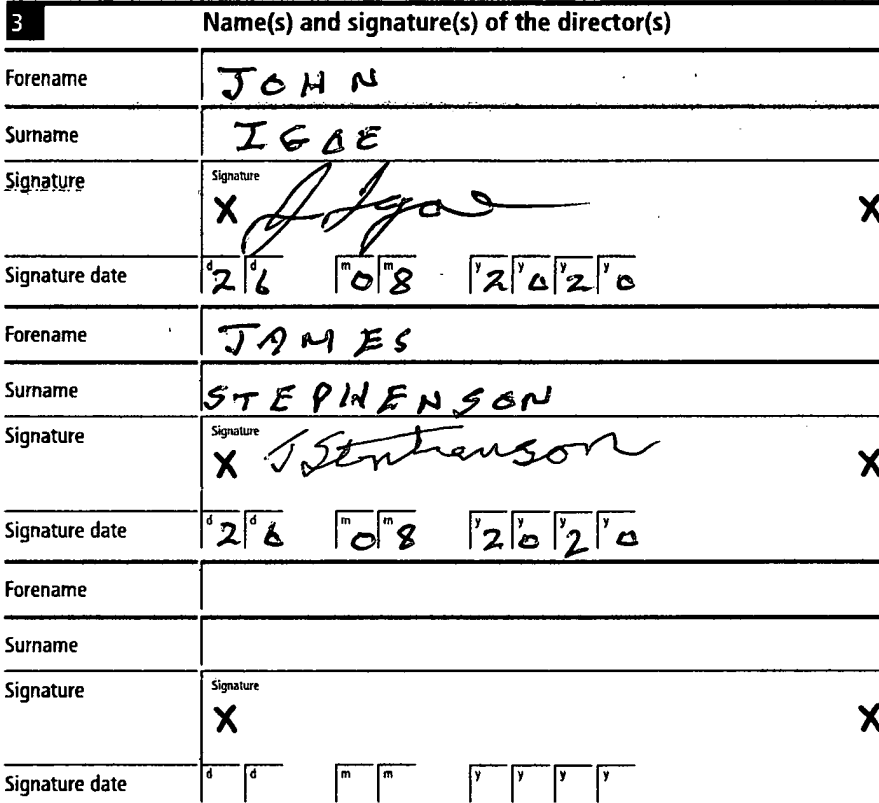 3 Name(s) and signature(s) of the director(s)
Forename JOHN
Surname IGOE
Signature Signature X J Igoe X
Signature date d2 d6 m0 m8 y2 y0 y2 y0
Forename JAMES
Surname STEPHENSON
Signature Signature X J Stephenson X
Signature date d2 d6 m0 m8 y2 y0 y2 y0
Forename
Surname
Signature Signature X X
Signature date d d m m y y y y